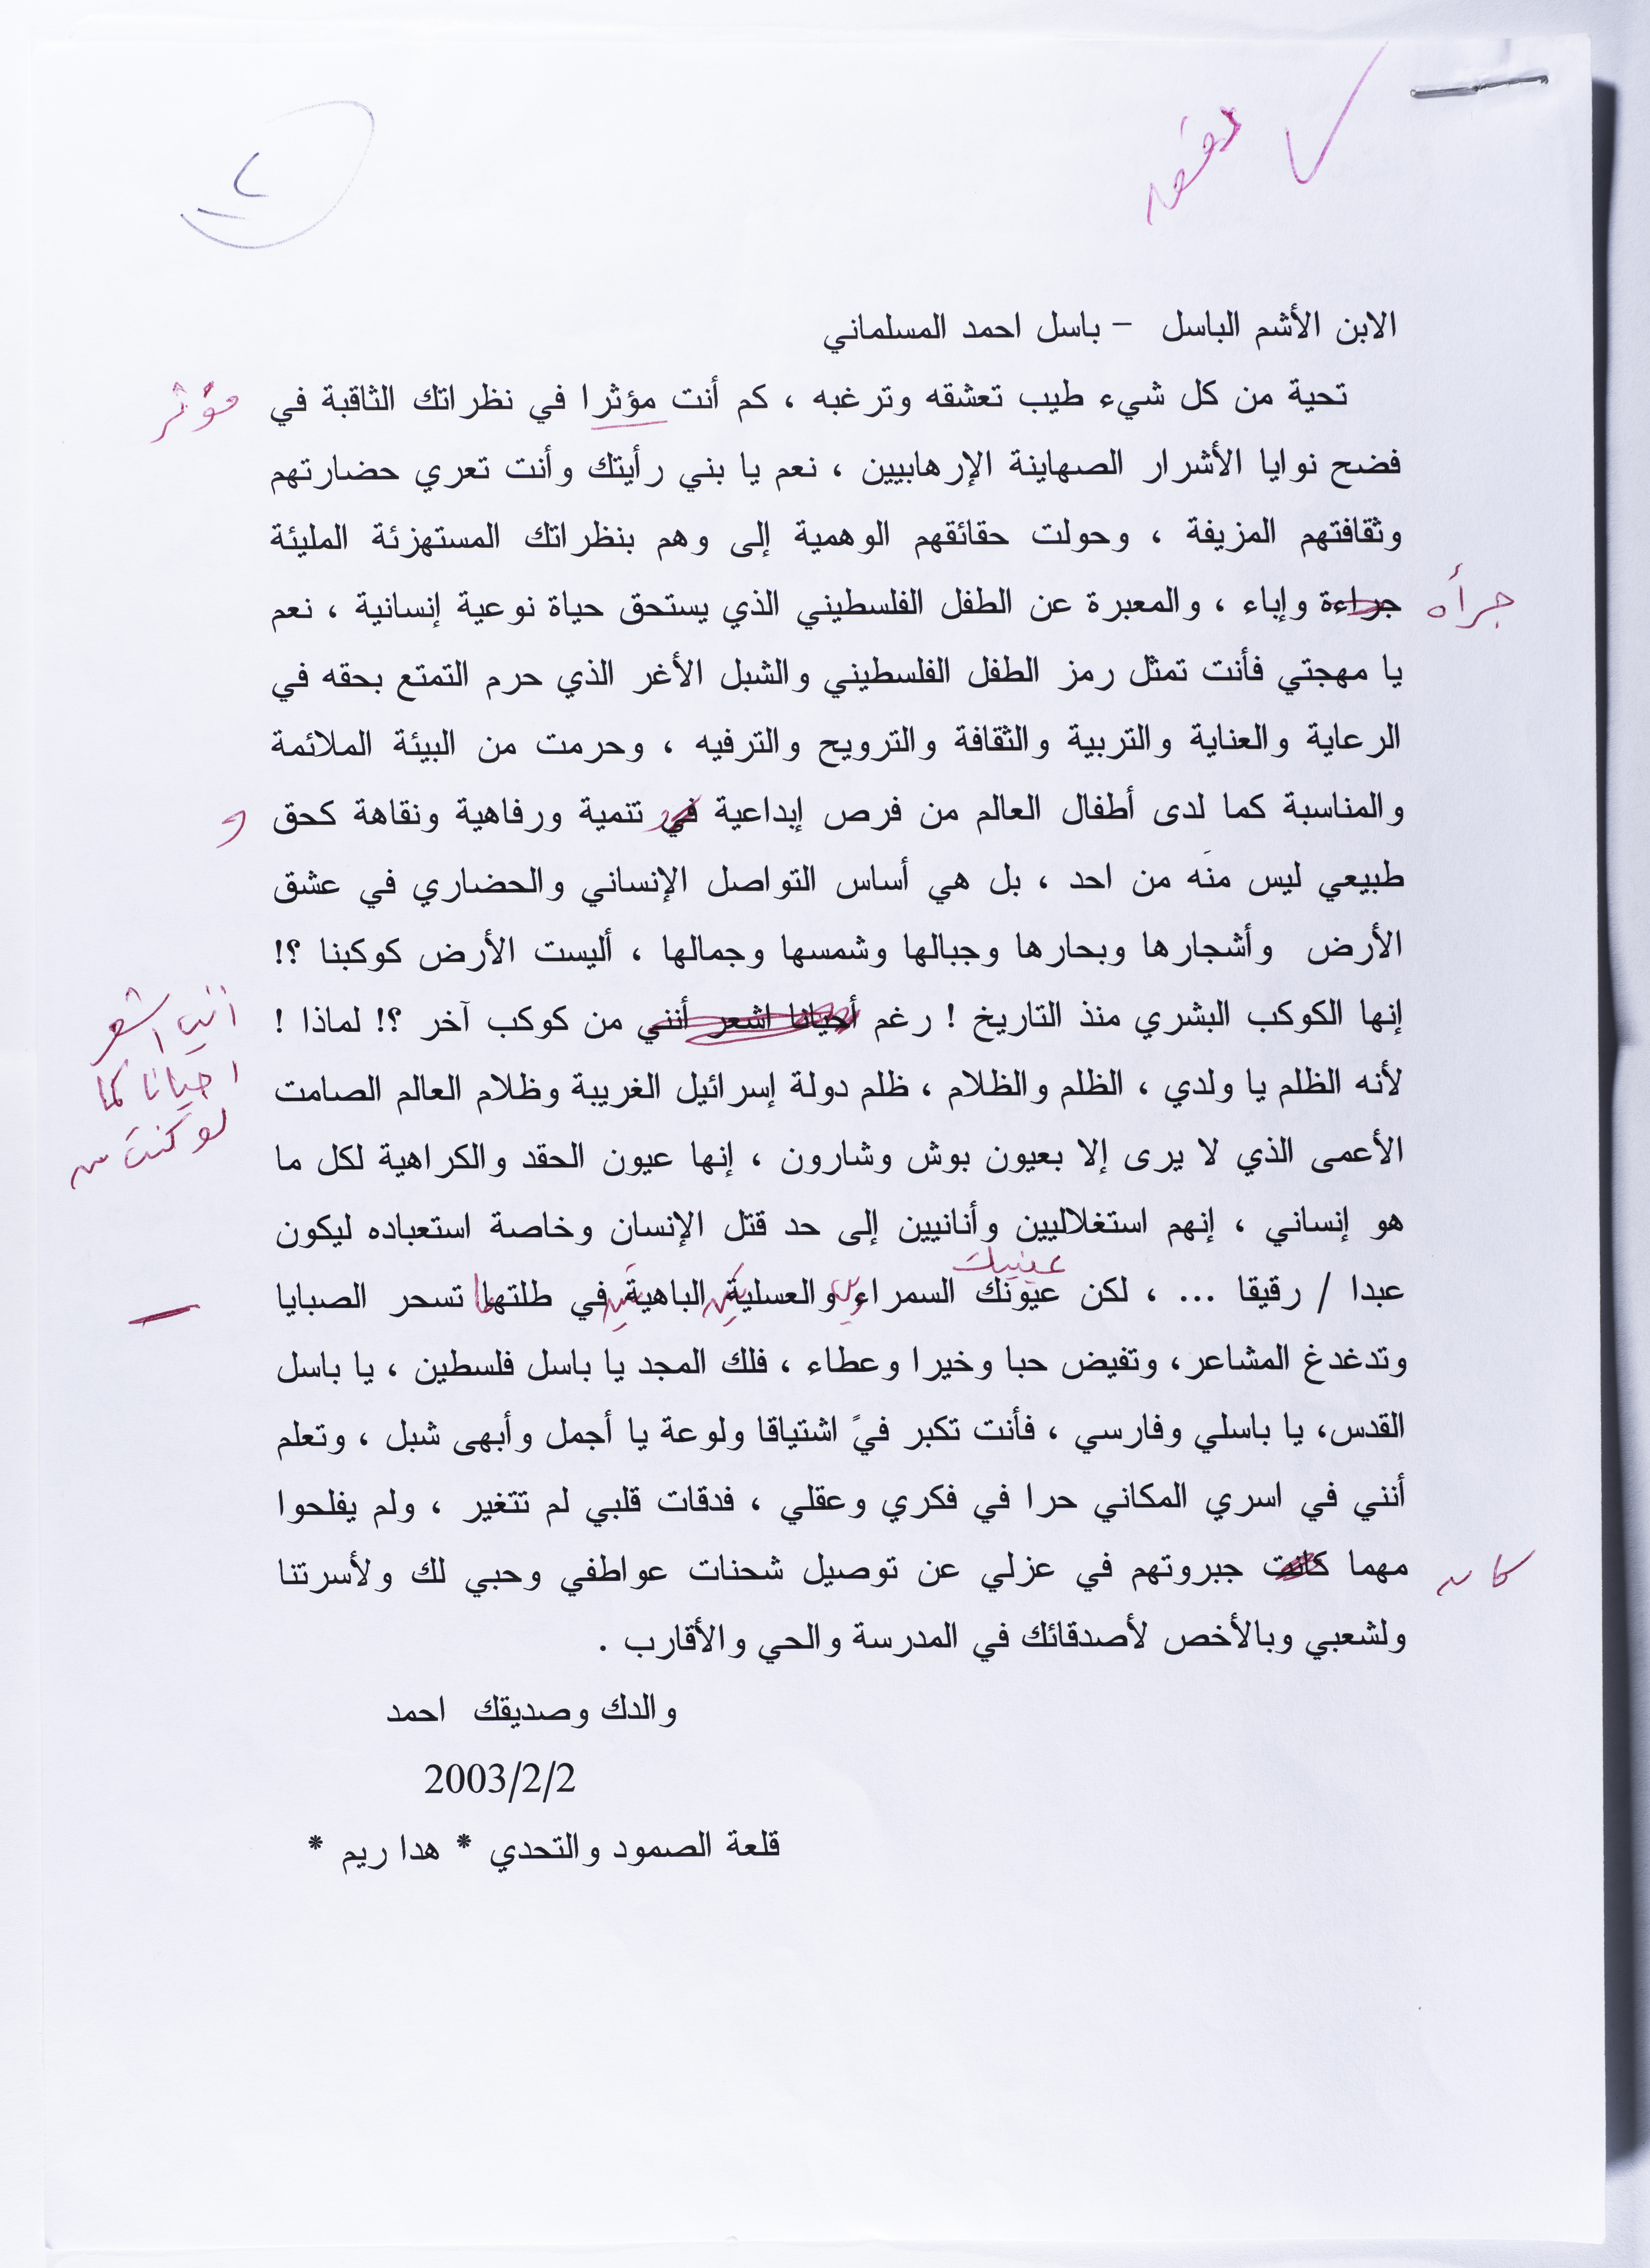 الابن الأشم الباسل – باسل احمد المسلماني
تحية من كل شيء طيب تعشقه وترغبه ، كم أنت مؤثرا في نظراتك الثاقبة في
مؤثر
فضح نوايا الأشرار الصهاينة الإرهابيين ، نعم يا بني رأيتك وأنت تعري حضارتهم
وثقافتهم المزيفة ، وحولت حقائقهم الوهمية إلى وهم بنظراتك المستهزئة المليئة
جرأه
جراءة وإباء ، والمعبرة عن الطفل الفلسطيني الذي يستحق حياة نوعية إنسانية ، نعم
يا مهجتي فأنت تمثل رمز الطفل الفلسطيني والشبل الأغر الذي حرم التمتع بحقه في
الرعاية والعناية والتربية والثقافة والترويح والترفيه ، وحرمت من البيئة الملائمة
والمناسبة كما لدى أطفال العالم من فرص إبداعية في تنمية ورفاهية ونقاهة كحق
و
طبيعي ليس منَه من احد ، بل هي أساس التواصل الإنساني والحضاري في عشق
الأرض وأشجارها وبحارها وجبالها وشمسها وجمالها ، أليست الأرض كوكبنا ؟!
إنها الكوكب البشري منذ التاريخ ! رغم أحيانا اشعر أنني من كوكب آخر ؟! لماذا !
انني اشعر
احيانا كما
لو كنت من
لأنه الظلم يا ولدي ، الظلم والظلام ، ظلم دولة إسرائيل الغريبة وظلام العالم الصامت
الأعمى الذي لا يرى إلا بعيون بوش وشارون ، إنها عيون الحقد والكراهية لكل ما
هو إنساني ، إنهم استغلاليين وأنانيين إلى حد قتل الإنسان وخاصة استعباده ليكون
عينيك
عبدا / رقيقا ... ، لكن عيونك السمراء والعسلية الباهية في طلتها تسحر الصبايا
وتدغدغ المشاعر، وتفيض حبا وخيرا وعطاء ، فلك المجد يا باسل فلسطين ، يا باسل
القدس، يا باسلي وفارسي ، فأنت تكبر فيً اشتياقا ولوعة يا أجمل وأبهى شبل ، وتعلم
أنني في اسري المكاني حرا في فكري وعقلي ، فدقات قلبي لم تتغير ، ولم يفلحوا
كان
مهما كانت جبروتهم في عزلي عن توصيل شحنات عواطفي وحبي لك ولأسرتنا
ولشعبي وبالأخص لأصدقائك في المدرسة والحي والأقارب .
والدك وصديقك احمد
2003/2/2
قلعة الصمود والتحدي * هدا ريم *